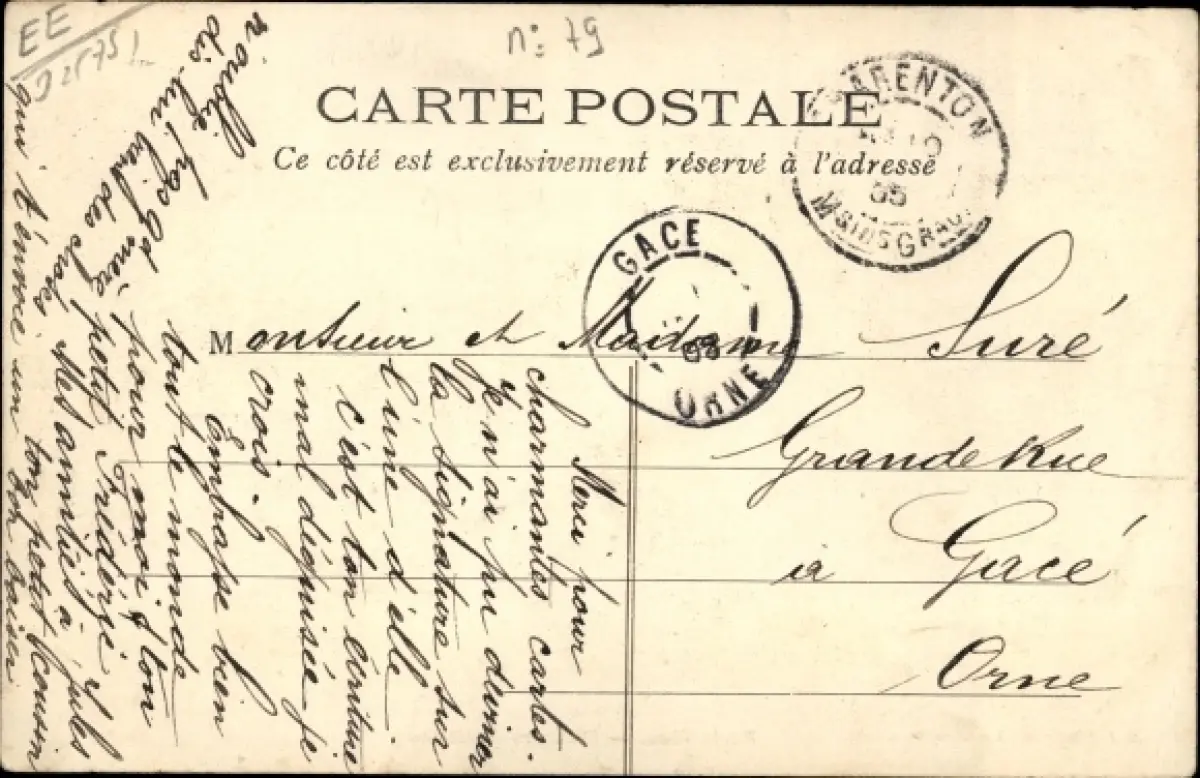 EE
n: 79
CARTE POSTALE
Ce côté est exclusivement réservé à l'adresse
CHARENTON
05
MAISONS GRAD.
GACE
ORNE
Monsieur et Madame Suré
Grande Rue
à Gacé
Orne
Merci pour
charmantes cartes.
Je n'ai pu deviner
la signature sur
l'une d'elle.
C'est ton écriture
mal déguisée je
crois.
Embrasse bien
tout le monde
pour moi & ton
petit
Mes amitiés à Jules
qui t'envoie un bon baiser
ton petit cousin
n'oublie pas gd mère
dis lui bien des choses